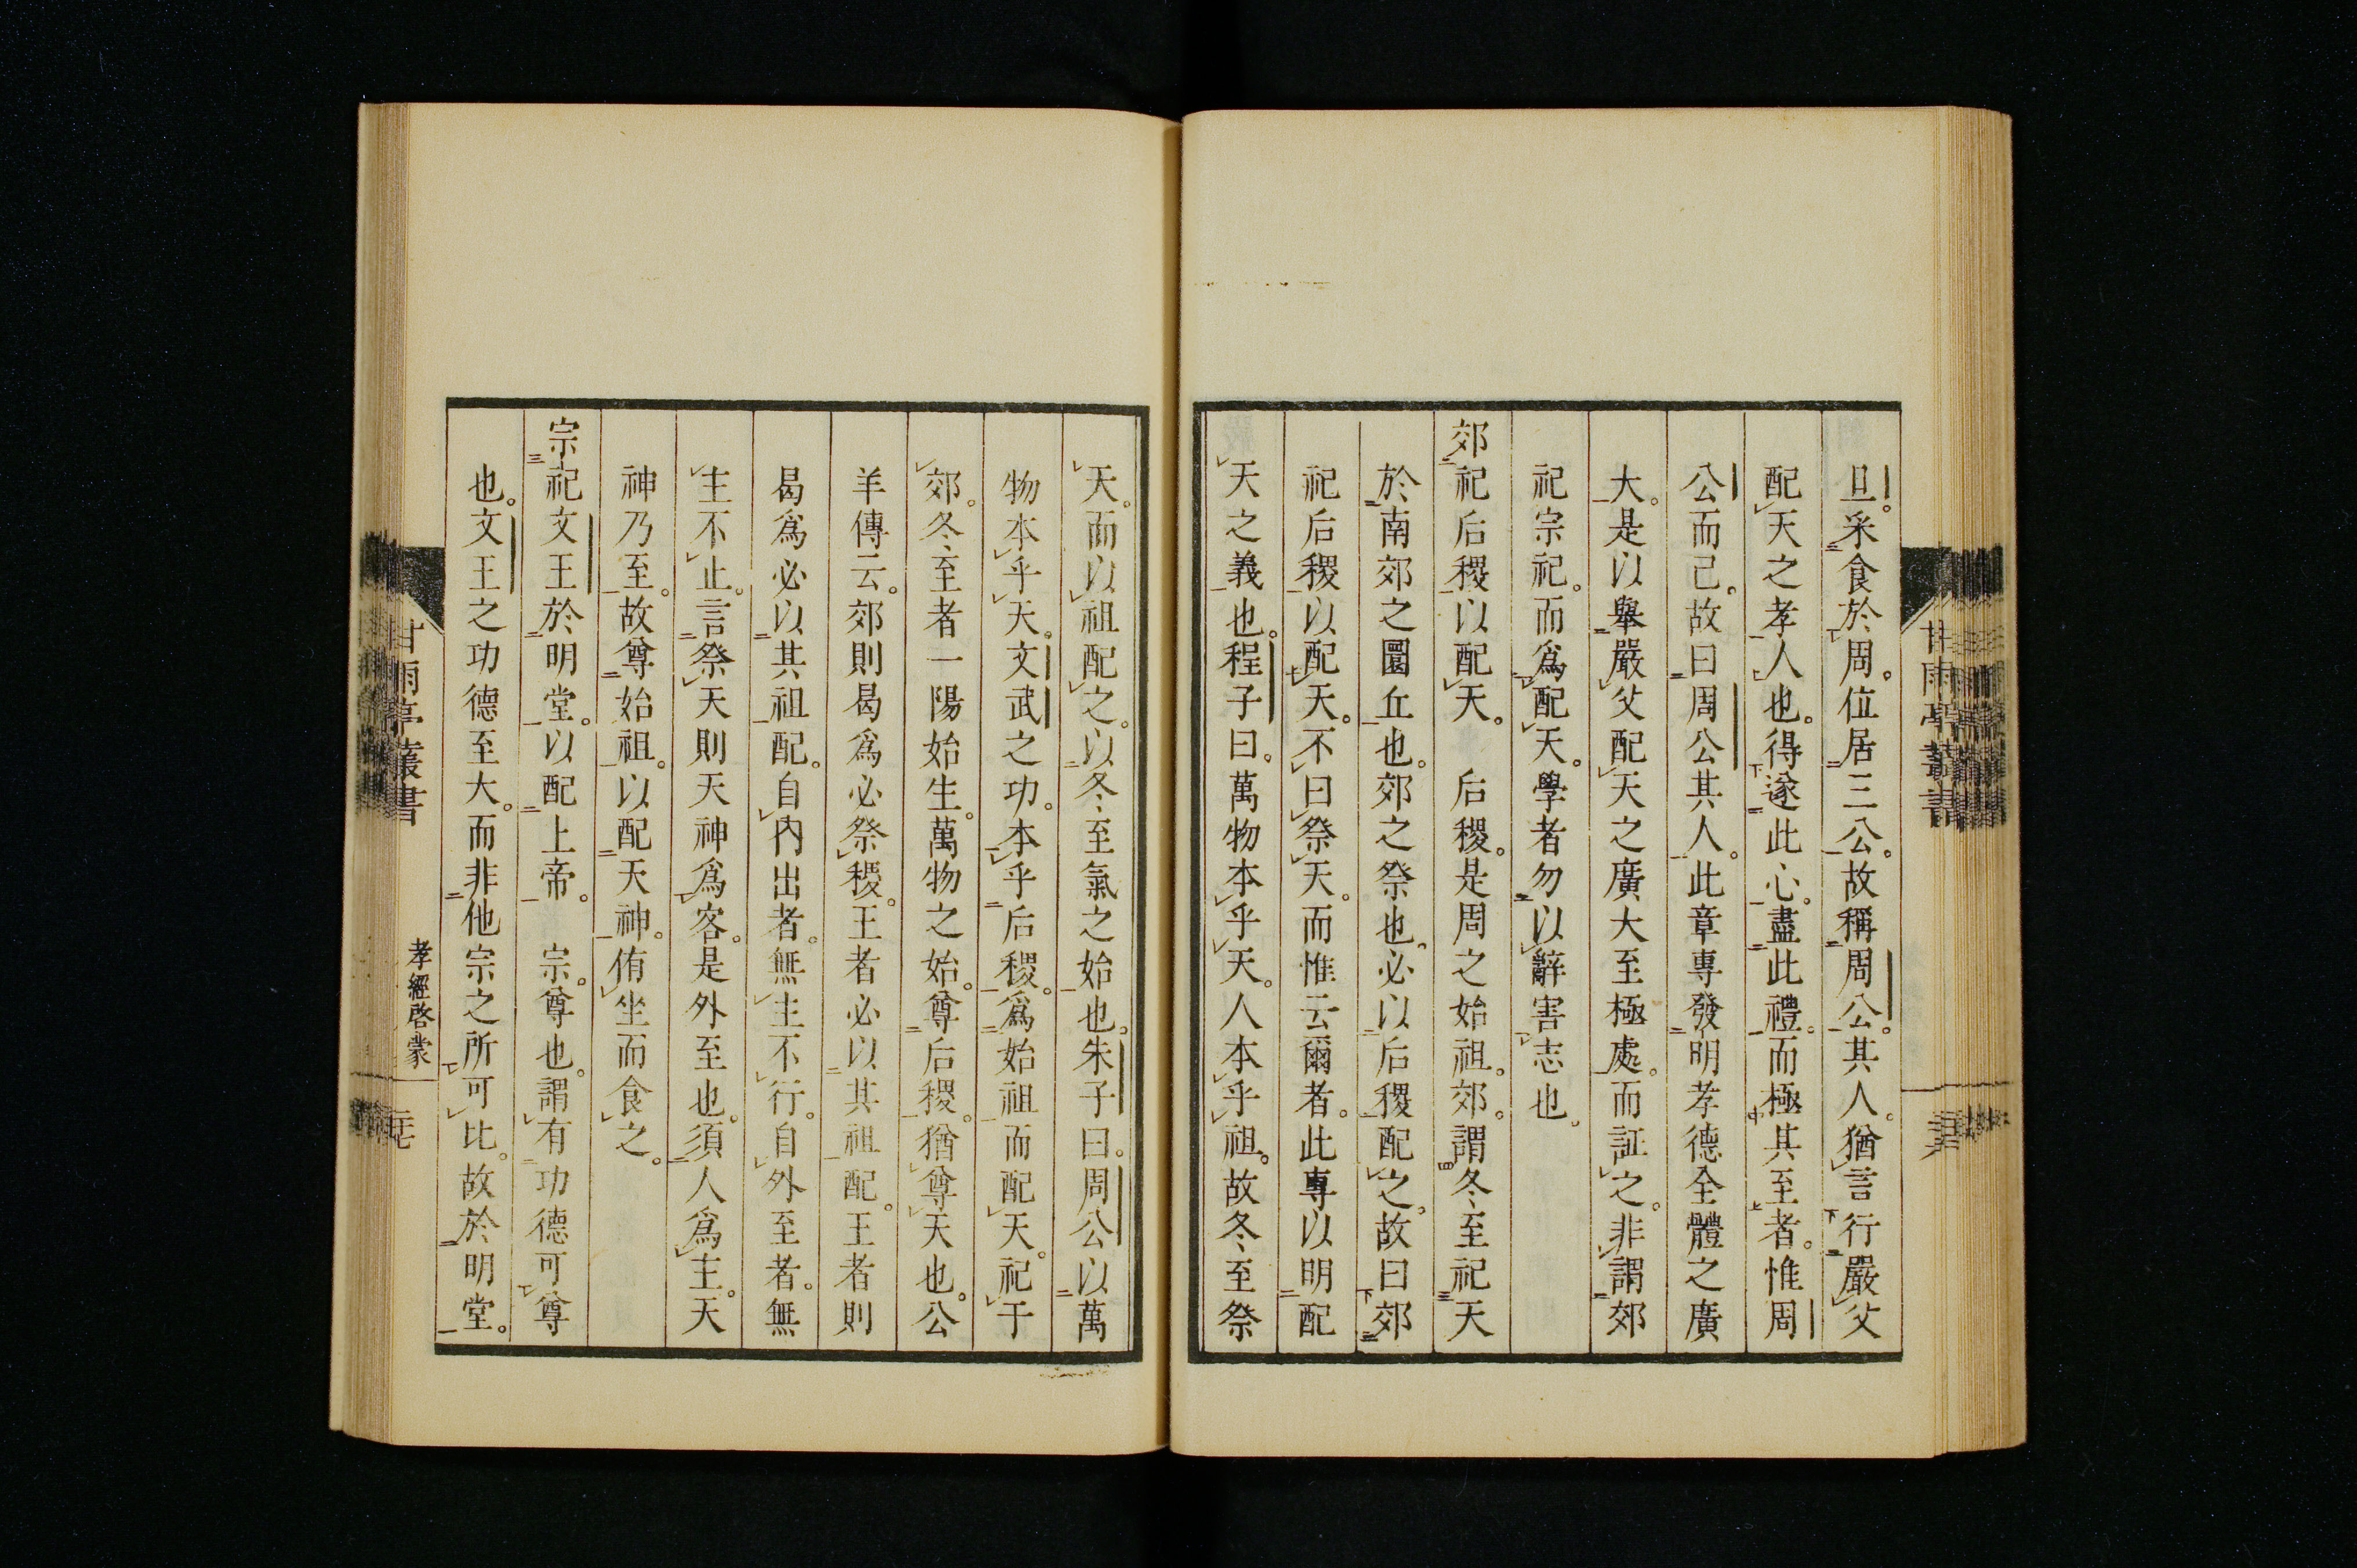 旦。采食於周。位居三公。故稱周公。其人。猶言行嚴父
配天之孝人也。得遂此心。盡此禮。而極其至者。惟周
公而己。故曰周公其人。此章專發明孝德全體之廣
大。是以舉嚴父配天之廣大至極處。而証之。非謂郊
祀宗祀。而爲配天。學者勿以辭害志也。
郊祀后稷以配天。 后稷。是周之始祖。郊。謂冬至祀天
於南郊之圜丘也。郊之祭也。必以后稷配之。故曰郊
祀后稷以配天。不曰祭天。而惟云爾者。此專以明配
天之義也。程子曰。萬物本乎天。人本乎祖。故冬至祭
天。而以祖配之。以冬至氣之始也。朱子曰。周公以萬
物本乎天。文武之功。本乎后稷。爲始祖而配天。祀于
郊。冬至者一陽始生。萬物之始。尊后稷。猶尊天也。公
羊傳云。郊則曷爲必祭稷。王者必以其祖配。王者則
曷爲必以其祖配。自內出者。無主不行。自外至者。無
主不止。言祭天則天神爲客。是外至也。須人爲主。天
神乃至。故尊始祖。以配天神。侑坐而食之。
宗祀文王於明堂。以配上帝。 宗。尊也。謂有功德可尊
也。文王之功德至大。而非他宗之所可比。故於明堂。
甘雨亭叢書
孝經啓蒙
甘雨亭叢書